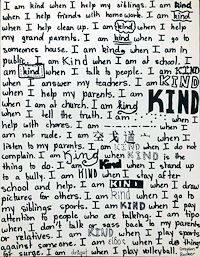 I am kind when I help my siblings. I am kind
when I help friends with homework. I am kind
when I help clean up. I am kind when I help
my grand parents. I am kind when I go to
someones house. I am kind when I am in
public. I am Kind when I am at school. I
am kind when I talk to people. I am KIND
when I answer my teachers. I am KIND
when I help my parents. I am KIND
when I am at church. I am kind
when I tell the truth. I am when I
help with chores. I am when I
am not rude. I am when I
listen to my parents. I am KIND when I do not
complain. I am King when KIND is the
thing to do. I am Kind when I stand up
to a bully. I am KIND when I stay after
school and help. I am KIND when I draw
pictures for others. I am Kind when I go to
my siblings sports. I am KIND when I pay
attention to people who are talking. I am
when I don't talk or sass back to my parents
or relatives. I am KIND when I play sports
against someone. I am when I do things
I am when I play volleyball.